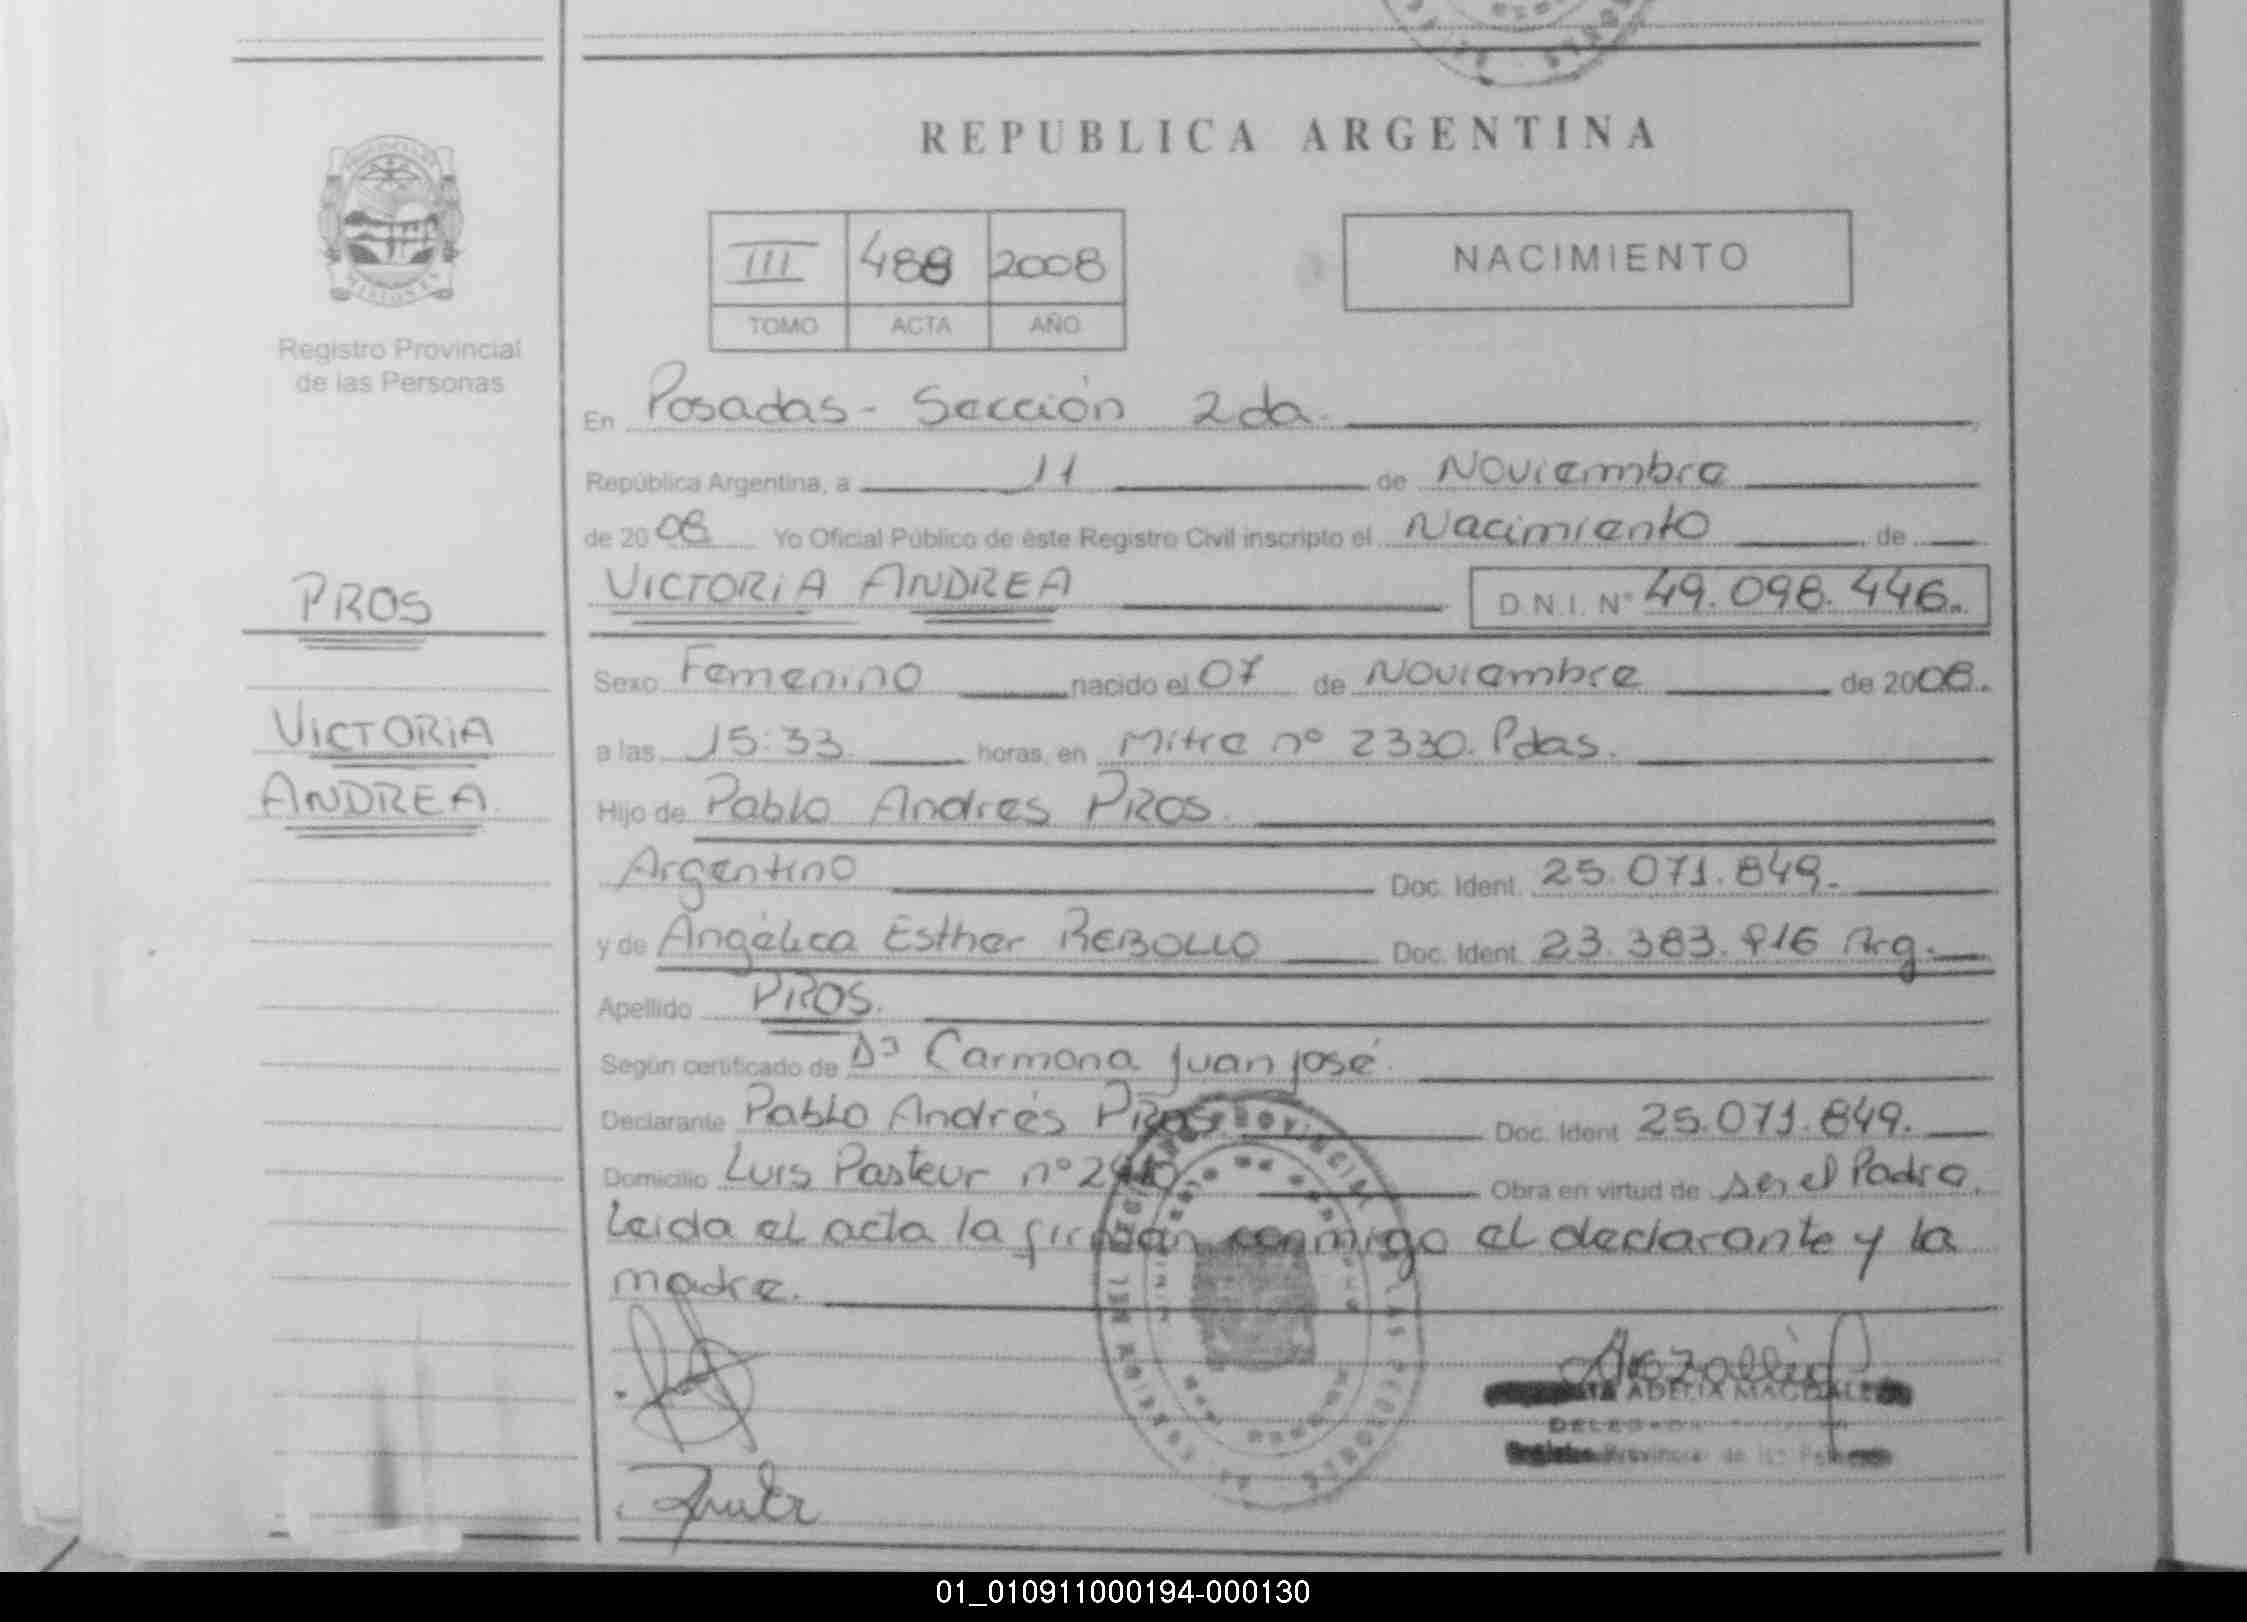 REPUBLICA ARGENTINA
MISIONES
Registro Provincial
de las Personas
III 488 2008
TOMO ACTA AÑO
NACIMIENTO
En Posadas - Sección 2da.
República Argentina, a 11 de Noviembre
de 2008 Yo Oficial Público de éste Registro Civil inscripto el Nacimiento de
PROS
VICTORIA ANDREA D.N.I. Nº 49.098.446.
Sexo Femenino nacido el 07 de Noviembre de 2008.
VICTORIA
ANDREA.
a las 15:33 horas, en Mitre nº 2330. Pdas.
Hijo de Pablo Andres PROS.
Argentino Doc. Ident. 25.071.849.
y de Angélica Esther REBOLLO Doc. Ident. 23.383.916 Arg.
Apellido PROS.
Según certificado de Carmona Juan José.
Declarante Pablo Andrés PROS Doc. Ident. 25.071.849.
Domicilio Luis Pasteur nº Obra en virtud de ser el Padre.
Leida el acta la firman conmigo el declarante y la
madre.
ADELIA MAGDALENA
Provincial de las
01_010911000194-000130